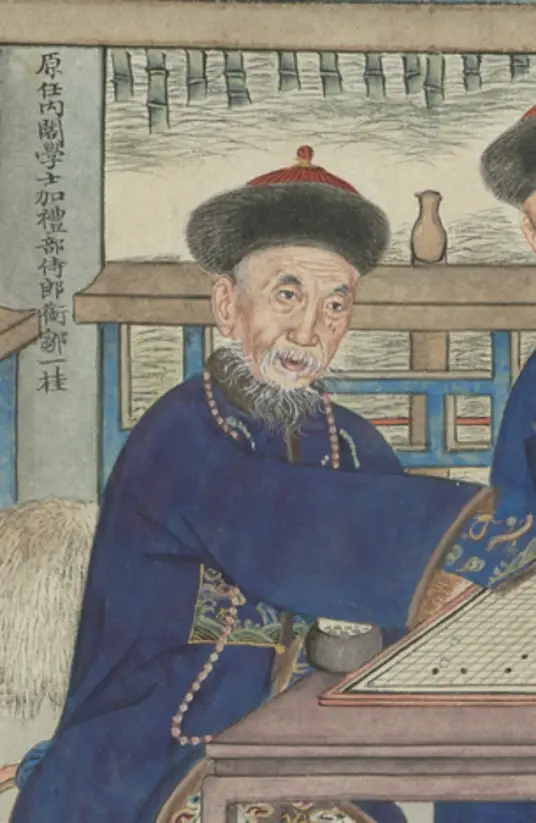 原任內閣學士加禮部侍郎銜鄒一桂